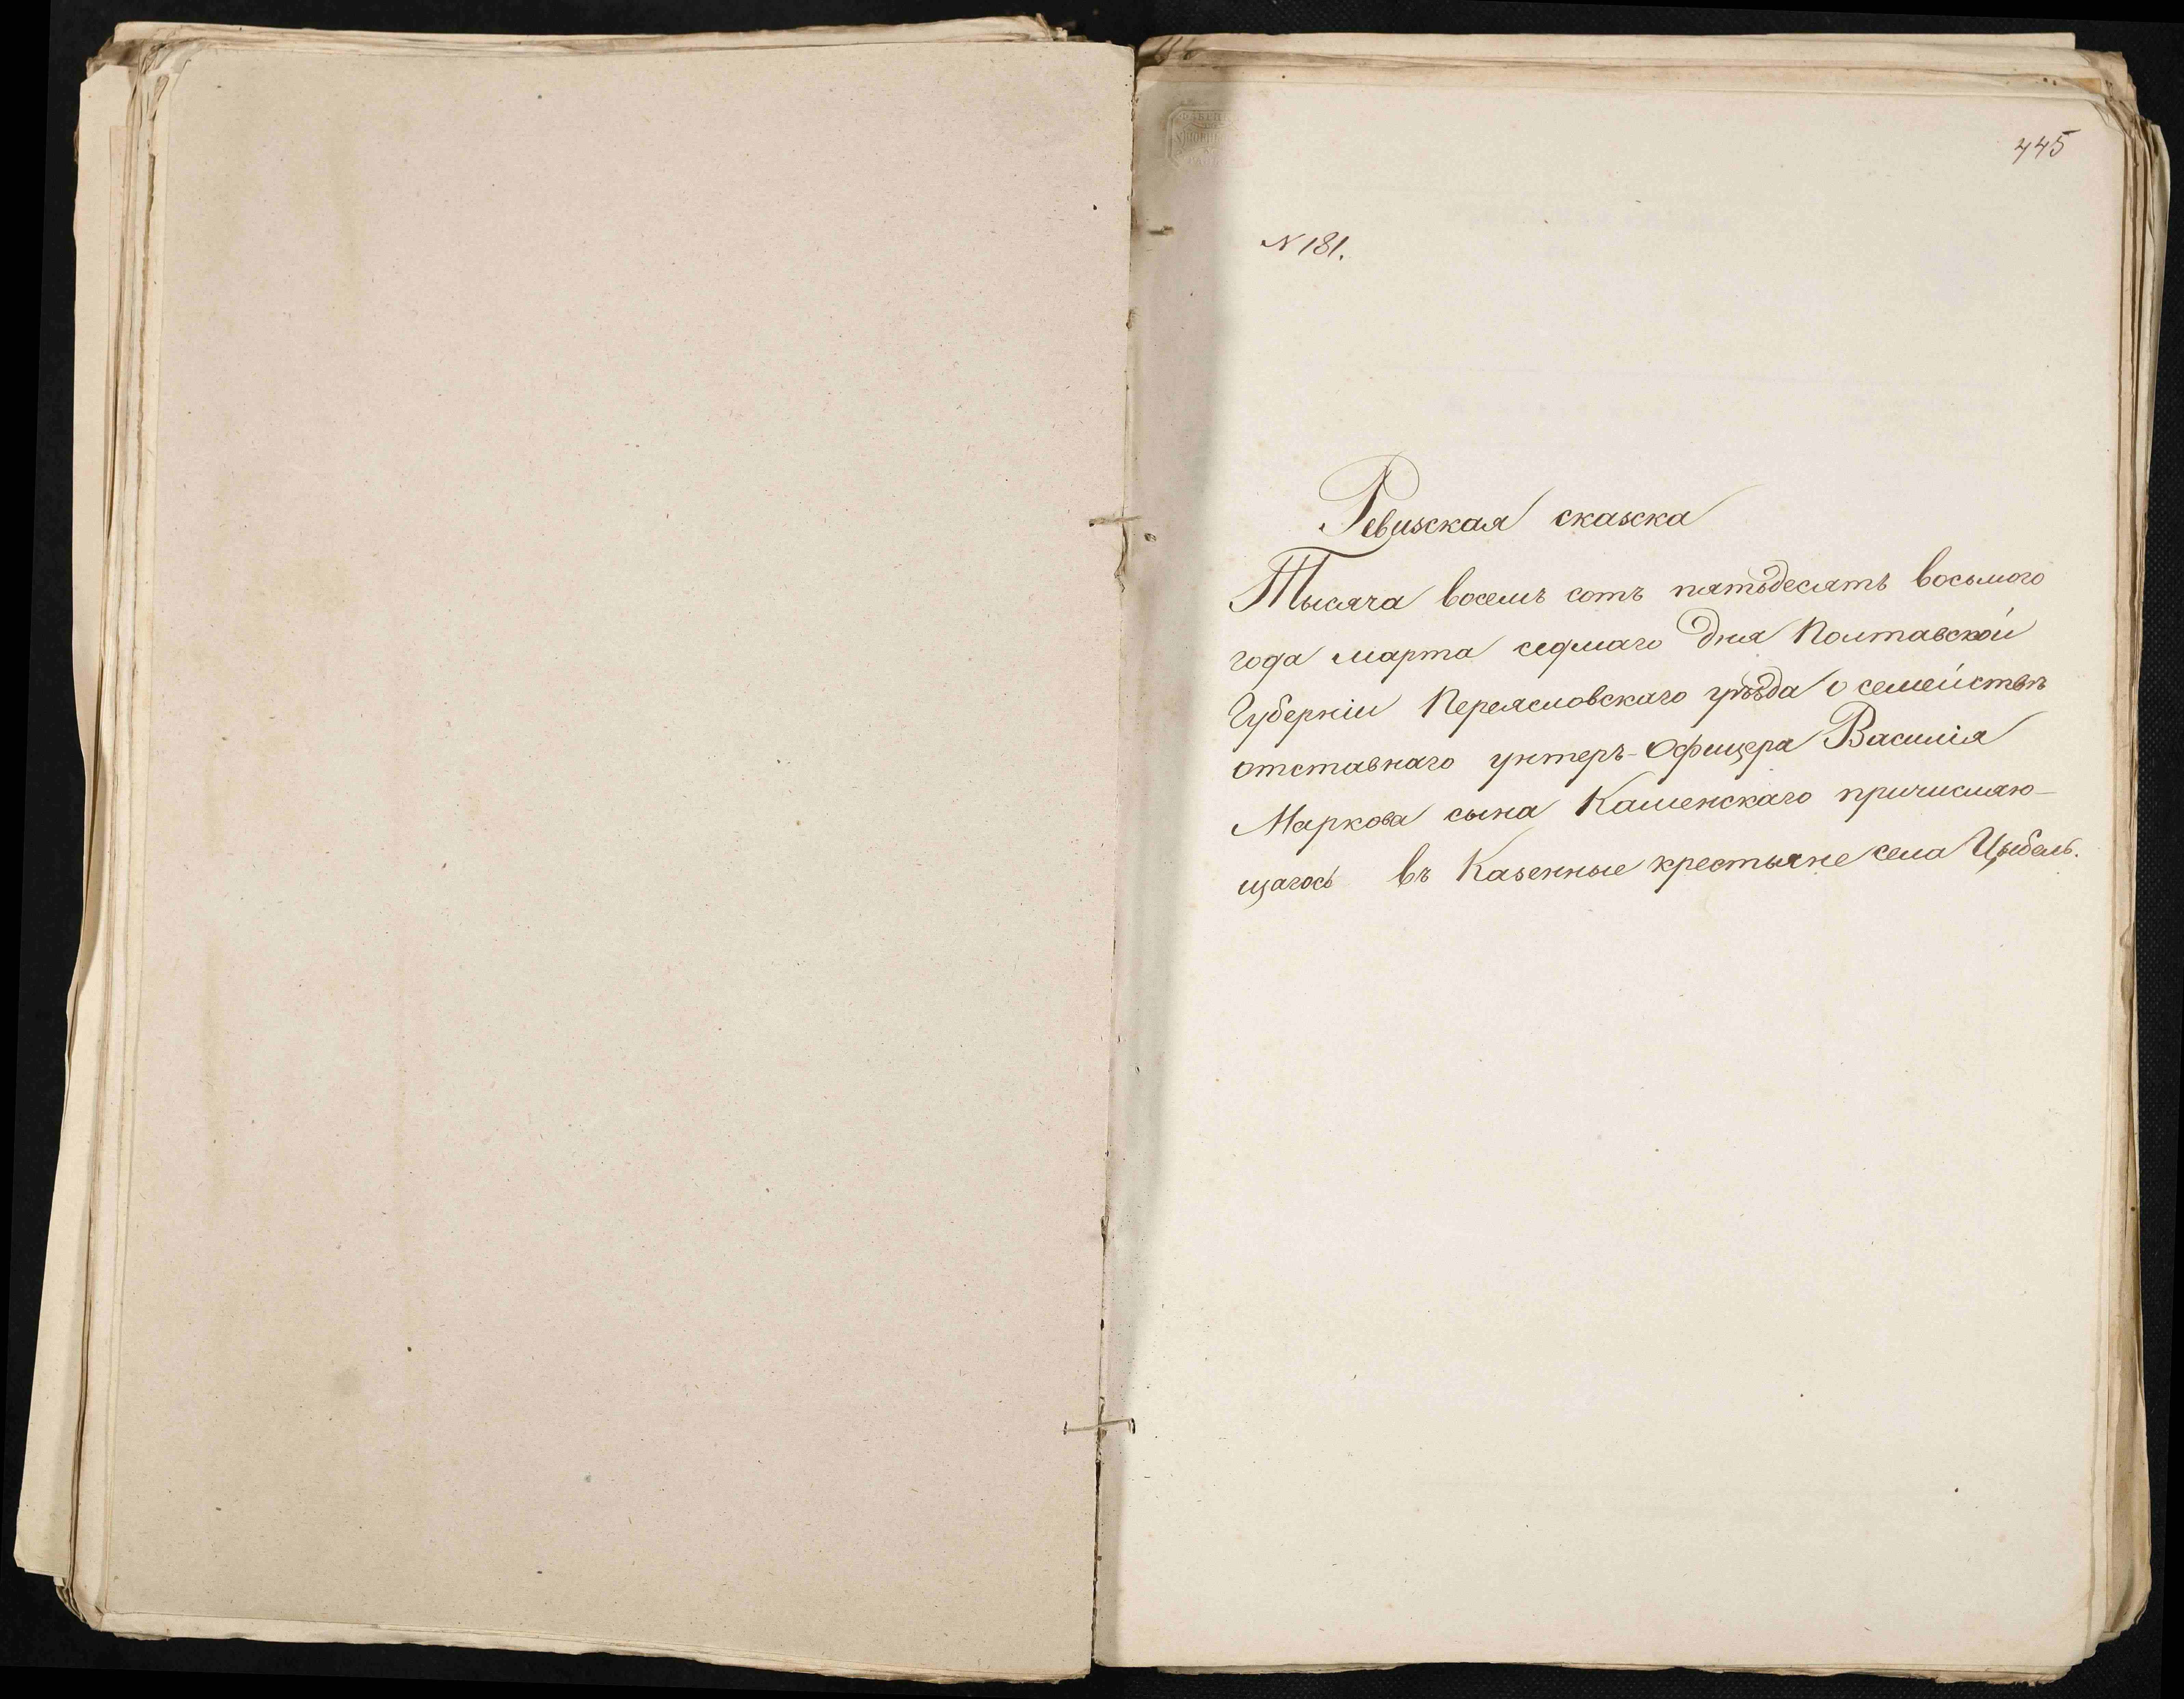 445
N 181.
Ревизская сказка
Тысяча восемь сотъ пятьдесятъ восьмого
года марта седмаго дня Полтавской
Губерніи Переясловскаго уѣзда о семействѣ
отставнаго унтеръ-Офицера Василія
Маркова сына Каменскаго причисляю-
щагось въ Казенные крестьяне села Цыбель.